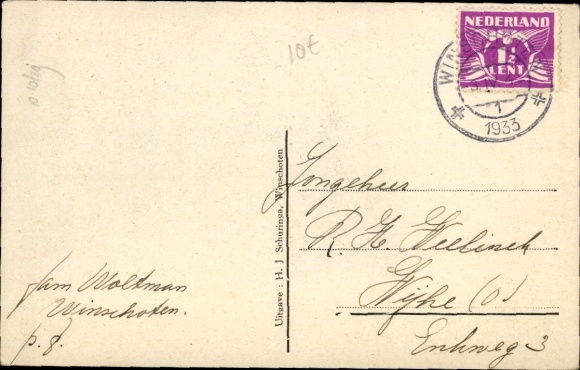 10€
NEDERLAND
1½
CENT
1
1933
Uitgave : H. J. Schuringa, Winschoten
Jongeheer
R. H.
Wijhe (O)
Enkweg 3
fam Woltman
Winschoten.
p. f.